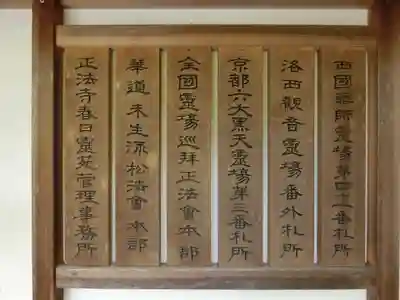 西國藥師霊場第四十二番札所
洛西觀音霊場番外札所
京都六大黒天霊場第三番札所
全國霊場巡拜正法會本部
華道未生流松浩會本部
正法寺春日靈苑管理事務所